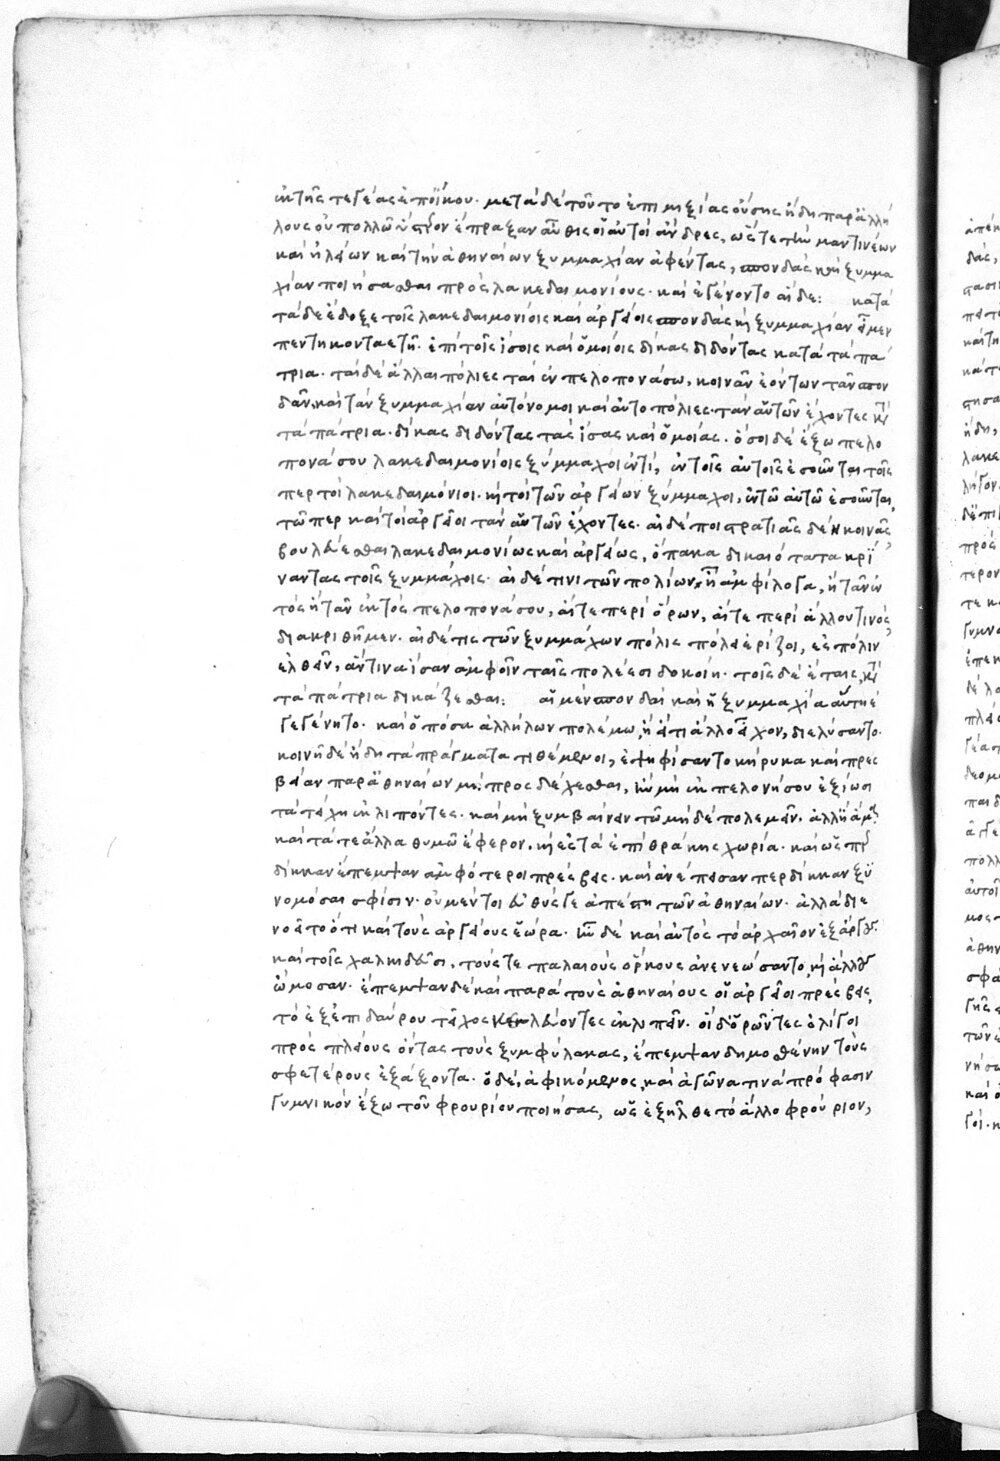 ἐκ τῆς τεγέας ἐπ' οἴκου. μετὰ δὲ τοῦτο ἐπιμιξίας οὔσης ἤδη παρ' ἀλλή
λους οὐ πολλῶ ὕστερον ἔπραξαν αὖθις οἱ αὐτοὶ ἄνδρες, ὥστε τὴν μαντινέων
καὶ ἠλείων καὶ τὴν ἀθηναίων ξυμμαχίαν ἀφέντας, σπονδὰς καὶ ξυμμα
χίαν ποιήσασθαι πρὸς λακεδαιμονίους. καὶ ἐγένοντο αἵδε: κατὰ
τάδε ἔδοξε τοῖς λακεδαιμονίοις καὶ ἀργείοις σπονδὰς καὶ ξυμμαχίαν εἶμεν
πεντήκοντα ἔτη. ἐπὶ τοῖς ἴσοις καὶ ὁμοίοις δίκας διδόντας κατὰ τὰ πά
τρια. ταὶ δὲ ἄλλαι πόλιες ταὶ ἐν πελοπονάσω, κοινᾶν ἐόντων τᾶν σπον
δᾶν, καὶ τὰν ξυμμαχίαν αὐτόνομοι καὶ αὐτοπόλιες. τὰν αὑτῶν ἔχοντες κατὰ
τὰ πάτρια. δίκας διδόντας τὰς ἴσας καὶ ὁμοίας. ὅσοι δὲ ἔξω πελο
πονάσου λακεδαιμονίοις ξύμμαχοι ἐντί, ἐν τοῖς αὐτοῖς ἐσσοῦνται τοῖς
περ τοὶ λακεδαιμόνιοι. καὶ τοὶ τῶν ἀργείων ξύμμαχοι, ἐν τῶ αὐτῶ ἐσσοῦνται,
τῶ περ καὶ τοὶ ἀργεῖοι τὰν αὑτῶν ἔχοντες. αἰ δέ ποι στρατιᾶς δέῃ κοινᾶς,
βουλεύεσθαι λακεδαιμονίως καὶ ἀργείως, ὅπα κα δικαιότατα κρί
ναντας τοῖς ξυμμάχοις. αἰ δέ τινι τῶν πολίων ἦ ἀμφίλογα, ἢ τᾶν ἐν
τὸς ἢ τᾶν ἐκτὸς πελοπονάσου, αἴτε περὶ ὅρων, αἴτε περὶ ἄλλου τινός,
διακριθῆμεν. αἰ δέ τις τῶν ξυμμάχων πόλις πόλει ἐρίζοι, ἐς πόλιν
ἐλθεῖν, ἅντινα ἴσαν ἀμφοῖν ταῖς πολέεσι δοκοίη. τοῖς δὲ ἔταις, κατὰ
τὰ πάτρια δικάζεσθαι: αἱ μὲν σπονδαὶ καὶ ἡ ξυμμαχία αὕτη ἐ
γεγένητο. καὶ ὁπόσα ἀλλήλων πολέμω, ἢ εἴ τι ἄλλο εἶχον, διελύσαντο.
κοινῆ δὲ ἤδη τὰ πράγματα τιθέμενοι, ἐψηφίσαντο κήρυκα καὶ πρες
βείαν παρ' ἀθηναίων μὴ προσδέχεσθαι, ἢν μὴ ἐκ πελοπονήσου ἐξίωσι
τὰ τείχη ἐκλιπόντες. καὶ μὴ ξυμβαίνειν τῶ μηδὲ πολεμεῖν, ἀλλ' ἢ ἅμα.
καὶ τά τε ἄλλα θυμῶ ἔφερον. καὶ ἐς τὰ ἐπὶ θράκης χωρία. καὶ ὡς περ
δίκκαν ἔπεμψαν ἀμφότεροι πρέσβεις. καὶ ἀνέπεισαν περδίκκαν ξυ
νομόσαι σφίσιν. οὐ μέντοι εὐθύς γε ἀπέστη τῶν ἀθηναίων. ἀλλὰ διε
νοεῖτο ὅτι καὶ τοὺς ἀργείους ἑώρα. ἦν δὲ καὶ αὐτὸς τὸ ἀρχαῖον ἐξ ἄργους.
καὶ τοῖς χαλκιδεῦσι, τούς τε παλαιοὺς ὅρκους ἀνενεώσαντο, καὶ ἄλλους
ὤμοσαν. ἔπεμψαν δὲ καὶ παρὰ τοὺς ἀθηναίους οἱ ἀργεῖοι πρέσβεις,
τὸ ἐξ ἐπιδαύρου τεῖχος κελεύοντες ἐκλιπεῖν. οἱ δ' ὁρῶντες ὀλίγοι
πρὸς πλείους ὄντας τοὺς ξυμφύλακας, ἔπεμψαν δημοσθένην τοὺς
σφετέρους ἐξάξοντα. ὁ δὲ, ἀφικόμενος, καὶ ἀγῶνα τινὰ πρόφασιν
γυμνικὸν ἔξω τοῦ φρουρίου ποιήσας, ὡς ἐξῆλθε τὸ ἄλλο φρούριον,